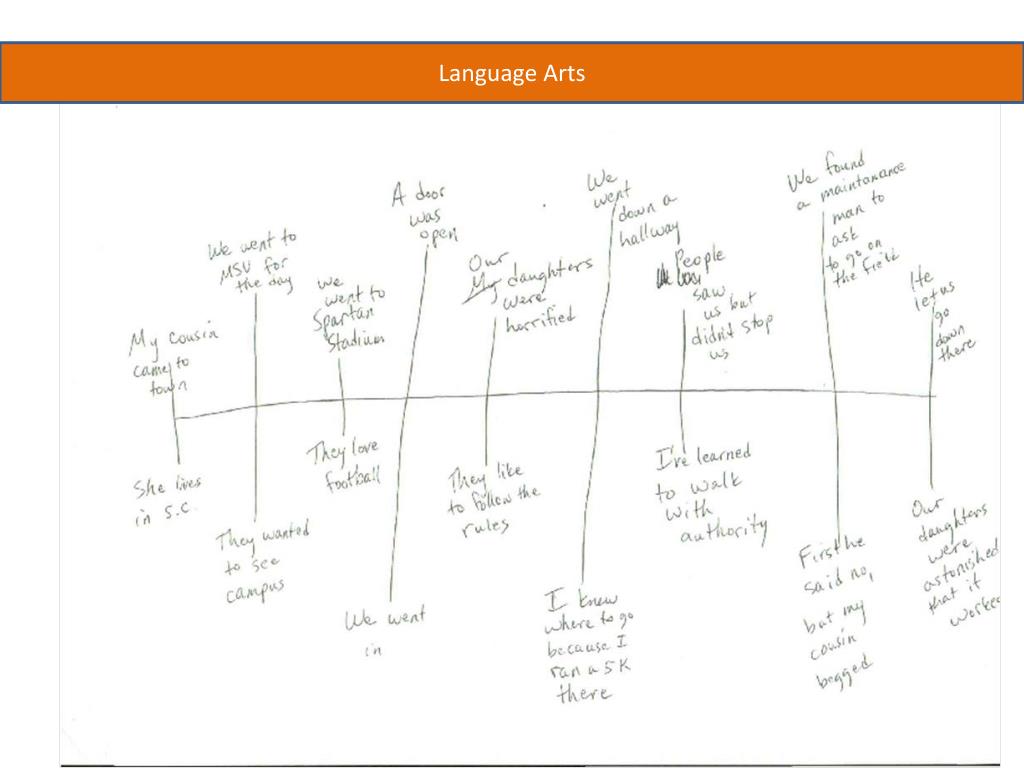 Language Arts
My cousin
came to
town
We went to
MSU for
the day
we
went to
Spartan
Stadium
A door
was
open
Our
My daughters
were
horrified
We
went
down a
hallway
People
saw
us but
didn't stop
us
We found
a maintanance
man to
ask
to go on
the field
He
let us
go
down
there
She lives
in S.C.
They wanted
to see
campus
They love
football
We went
in
They like
to follow the
rules
I knew
where to go
because I
ran a 5K
there
I've learned
to walk
with
authority
First he
said no,
but my
cousin
begged
Our
daughters
were
astonished
that it
worked